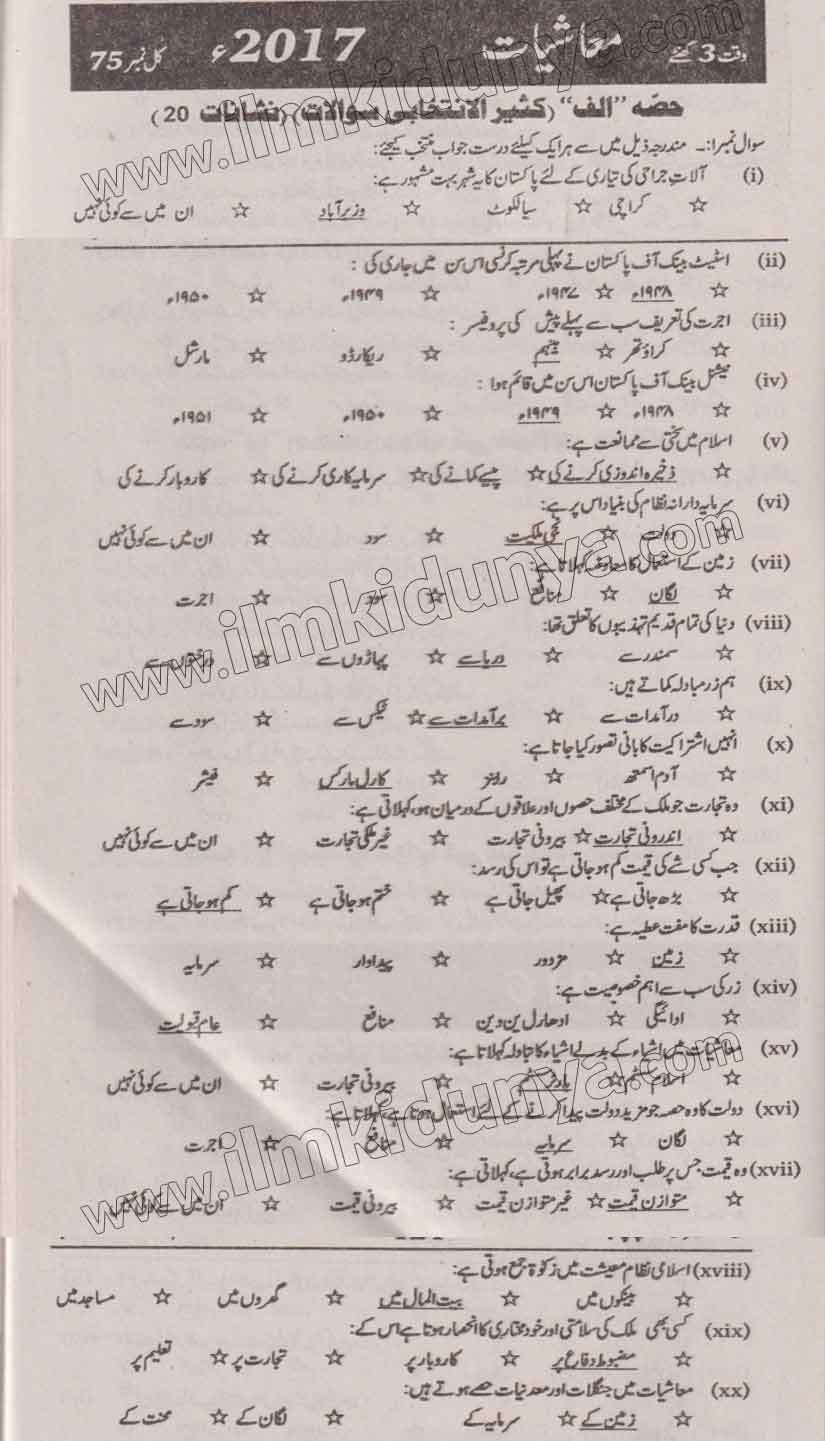 وقت 3 گھنٹے معاشیات 2017ء کل نمبر 75
حصّہ "الف" (کثیر الانتخابی سوالات) (نشانات 20)
سوال نمبر1:۔ مندرجہ ذیل میں سے ہر ایک کیلئے درست جواب منتخب کیجئے:
(i) آلاتِ جراحی کی تیاری کے لئے پاکستان کا یہ شہر بہت مشہور ہے:
☆ کراچی ☆ سیالکوٹ ☆ وزیرآباد ☆ ان میں سے کوئی نہیں
(ii) اسٹیٹ بینک آف پاکستان نے پہلی مرتبہ کرنسی اس سن میں جاری کی:
☆ ۱۹۴۸ء ☆ ۱۹۴۷ء ☆ ۱۹۴۹ء ☆ ۱۹۵۰ء
(iii) اجرت کی تعریف سب سے پہلے پیش کی پروفیسر:
☆ کراؤتھر ☆ بینہم ☆ ریکارڈو ☆ مارشل
(iv) نیشنل بینک آف پاکستان اس سن میں قائم ہوا:
☆ ۱۹۴۸ء ☆ ۱۹۴۹ء ☆ ۱۹۵۰ء ☆ ۱۹۵۱ء
(v) اسلام میں سختی سے ممانعت ہے:
☆ ذخیرہ اندوزی کرنے کی ☆ پیسے کمانے کی ☆ سرمایہ کاری کرنے کی ☆ کاروبار کرنے کی
(vi) سرمایہ دارانہ نظام کی بنیاد اس پر ہے:
☆ دولت ☆ نجی ملکیت ☆ سود ☆ ان میں سے کوئی نہیں
(vii) زمین کے استعمال کا معاوضہ کہلاتا ہے:
☆ لگان ☆ منافع ☆ سود ☆ اجرت
(viii) دنیا کی تمام قدیم تہذیبوں کا تعلق تھا:
☆ سمندر سے ☆ دریا سے ☆ پہاڑوں سے ☆ درختوں سے
(ix) ہم زرمبادلہ کماتے ہیں:
☆ درآمدات سے ☆ برآمدات سے ☆ ٹیکس سے ☆ سود سے
(x) انہیں اشتراکیت کا بانی تصور کیا جاتا ہے:
☆ آدم اسمتھ ☆ رابنز ☆ کارل مارکس ☆ فیشر
(xi) وہ تجارت جو ملک کے مختلف حصوں اور علاقوں کے درمیان ہو، کہلاتی ہے:
☆ اندرونی تجارت ☆ بیرونی تجارت ☆ غیر ملکی تجارت ☆ ان میں سے کوئی نہیں
(xii) جب کسی شے کی قیمت کم ہو جاتی ہے تو اس کی رسد:
☆ بڑھ جاتی ہے ☆ پھیل جاتی ہے ☆ ختم ہو جاتی ہے ☆ کم ہو جاتی ہے
(xiii) قدرت کا مفت عطیہ ہے:
☆ زمین ☆ مزدور ☆ پیداوار ☆ سرمایہ
(xiv) زر کی سب سے اہم خصوصیت ہے:
☆ ادائیگی ☆ ادھار لین دین ☆ منافع ☆ عام قبولیت
(xv) معاشیات میں اشیاء کے بدلے اشیاء کا تبادلہ کہلاتا ہے:
☆ اسلام سسٹم ☆ بارٹر سسٹم ☆ بیرونی تجارت ☆ ان میں سے کوئی نہیں
(xvi) دولت کا وہ حصہ جو مزید دولت پیدا کرنے کے لئے استعمال ہوتا ہے، کہلاتا ہے:
☆ لگان ☆ سرمایہ ☆ منافع ☆ اجرت
(xvii) وہ قیمت جس پر طلب اور رسد برابر ہوتی ہے، کہلاتی ہے:
☆ متوازن قیمت ☆ غیر متوازن قیمت ☆ بیرونی قیمت ☆ ان میں سے کوئی نہیں
(xviii) اسلامی نظام معیشت میں زکوٰۃ جمع ہوتی ہے:
☆ بینکوں میں ☆ بیت المال میں ☆ گھروں میں ☆ مساجد میں
(xix) کسی بھی ملک کی سلامتی اور خودمختاری کا انحصار ہوتا ہے اس کے:
☆ مضبوط دفاع پر ☆ کاروبار پر ☆ تجارت پر ☆ تعلیم پر
(xx) معاشیات میں جنگلات اور معدنیات حصے ہوتے ہیں:
☆ زمین کے ☆ سرمایہ کے ☆ لگان کے ☆ محنت کے
www.ilmkidunya.com
www.ilmkidunya.com
www.ilmkidunya.com